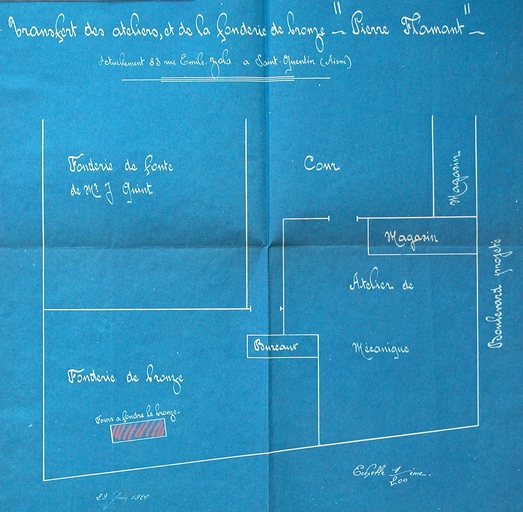 Transfert des ateliers, et de la fonderie de bronze — "Pierre Flamant" —
Actuellement 83 rue Emile-Zola a Saint-Quentin (Aisne)
Fonderie de fonte
de Mr J Quint
Cour
Magasin
Magasin
Atelier de
Mécanique
Boulevard projeté
Bureaux
Fonderie de bronze
Fours a fondre le bronze.
Echelle 1/200 ème.